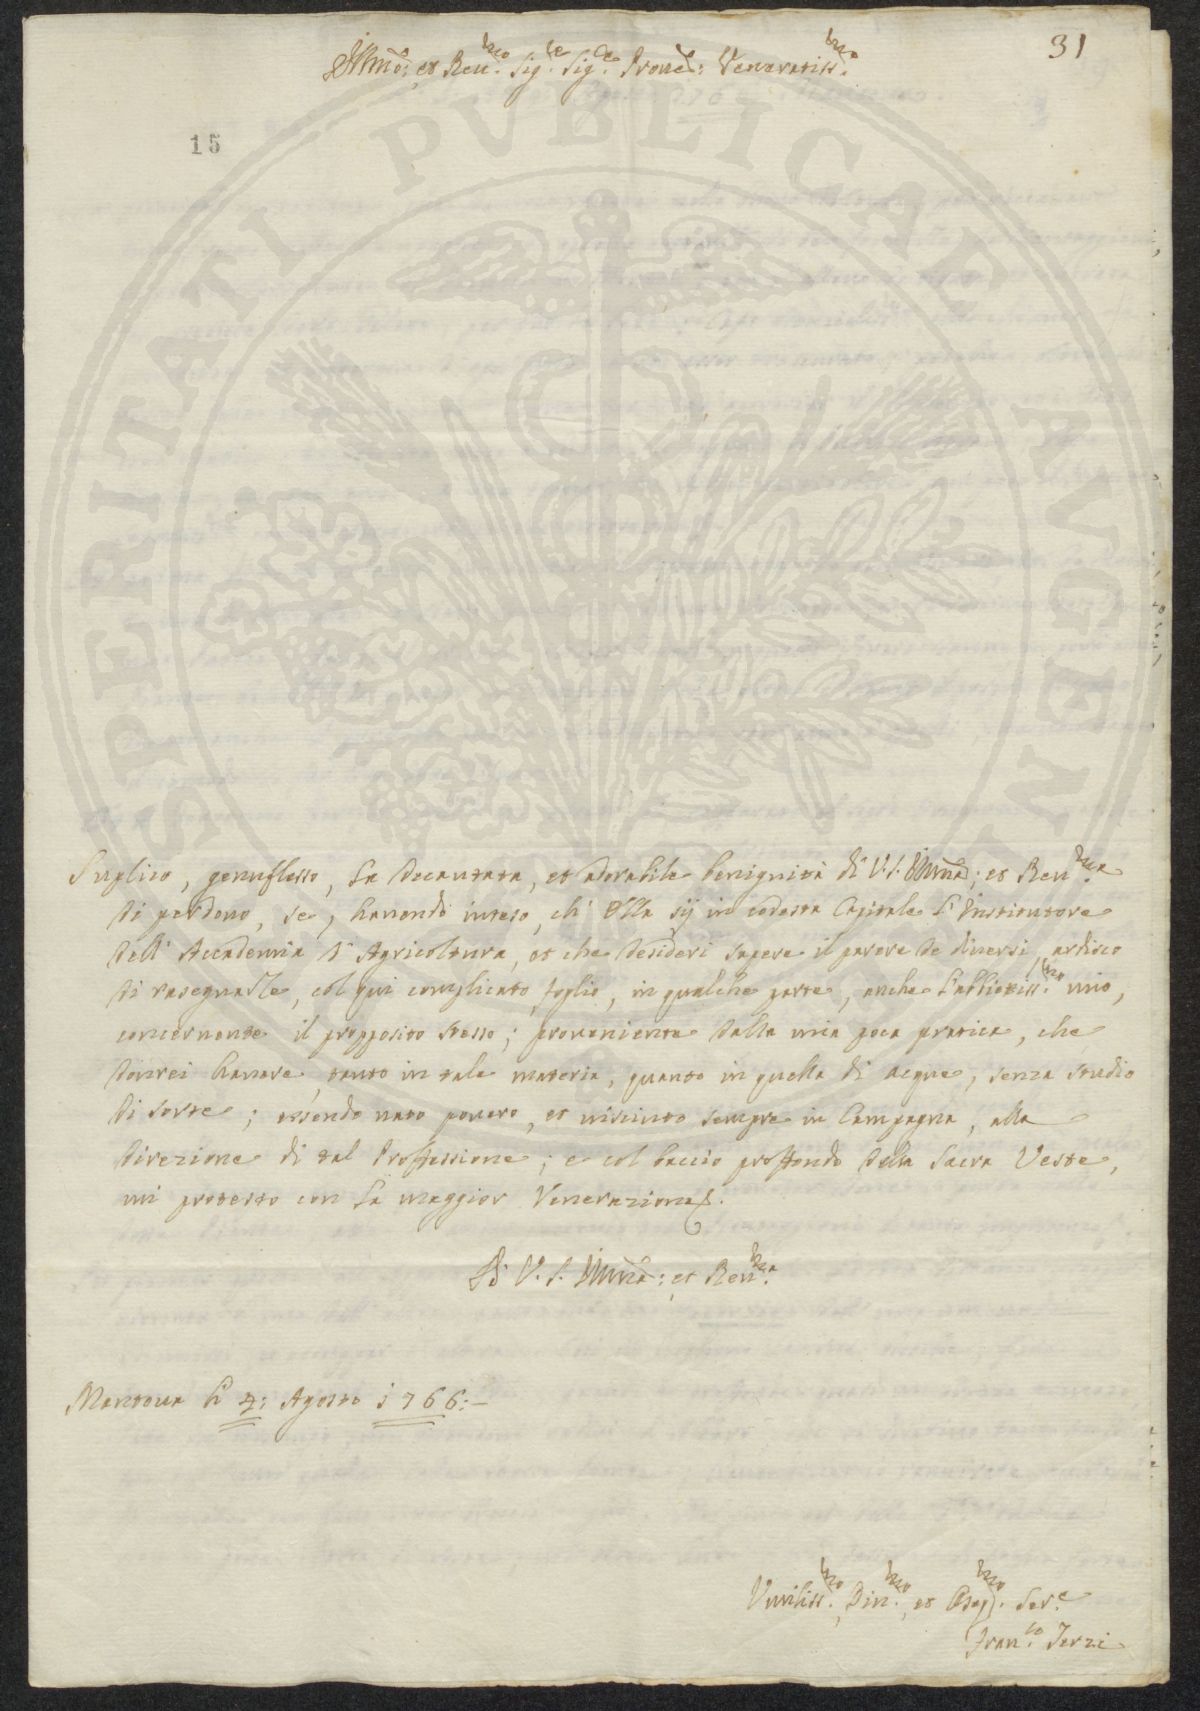 31
Illmo: et Reu.mo Sig.re Sig.re Proned: Veneratiss.mo
15
PVBLICAE
Suplico, genuflesso, la decantata, et adorabile benignità di V.S. Illma; et Reu.ma
di perdono, se, hauendo inteso, ch' Ella sij in codesta Capitale l'Institutore
dell' Accademia d'Agricoltura, et che desideri sapere il parere de diuersi, ardisco
di rasegnarle, col qui complicato foglio, in qualche parte, anche l'abbiettiss.mo mio,
concernente il propposito stesso; proueniente dalla mia poca pratica, che
dourei hauere tanto in tale materia, quanto in quella di acque, senza studio
di sorte; essendo nato pouero, et uissuto sempre in Campagna, alla
direzione di tal Proffessione; e col baccio proffondo della Sacra Veste,
mi protesto con la maggior Venerazione.
Di V.S. Illma: et Reu.ma
Mantoua li 4: Agosto 1766:–
Vmiliss.mo, Diu.mo, et Osseq.mo Ser.e
Fran.co Terzi